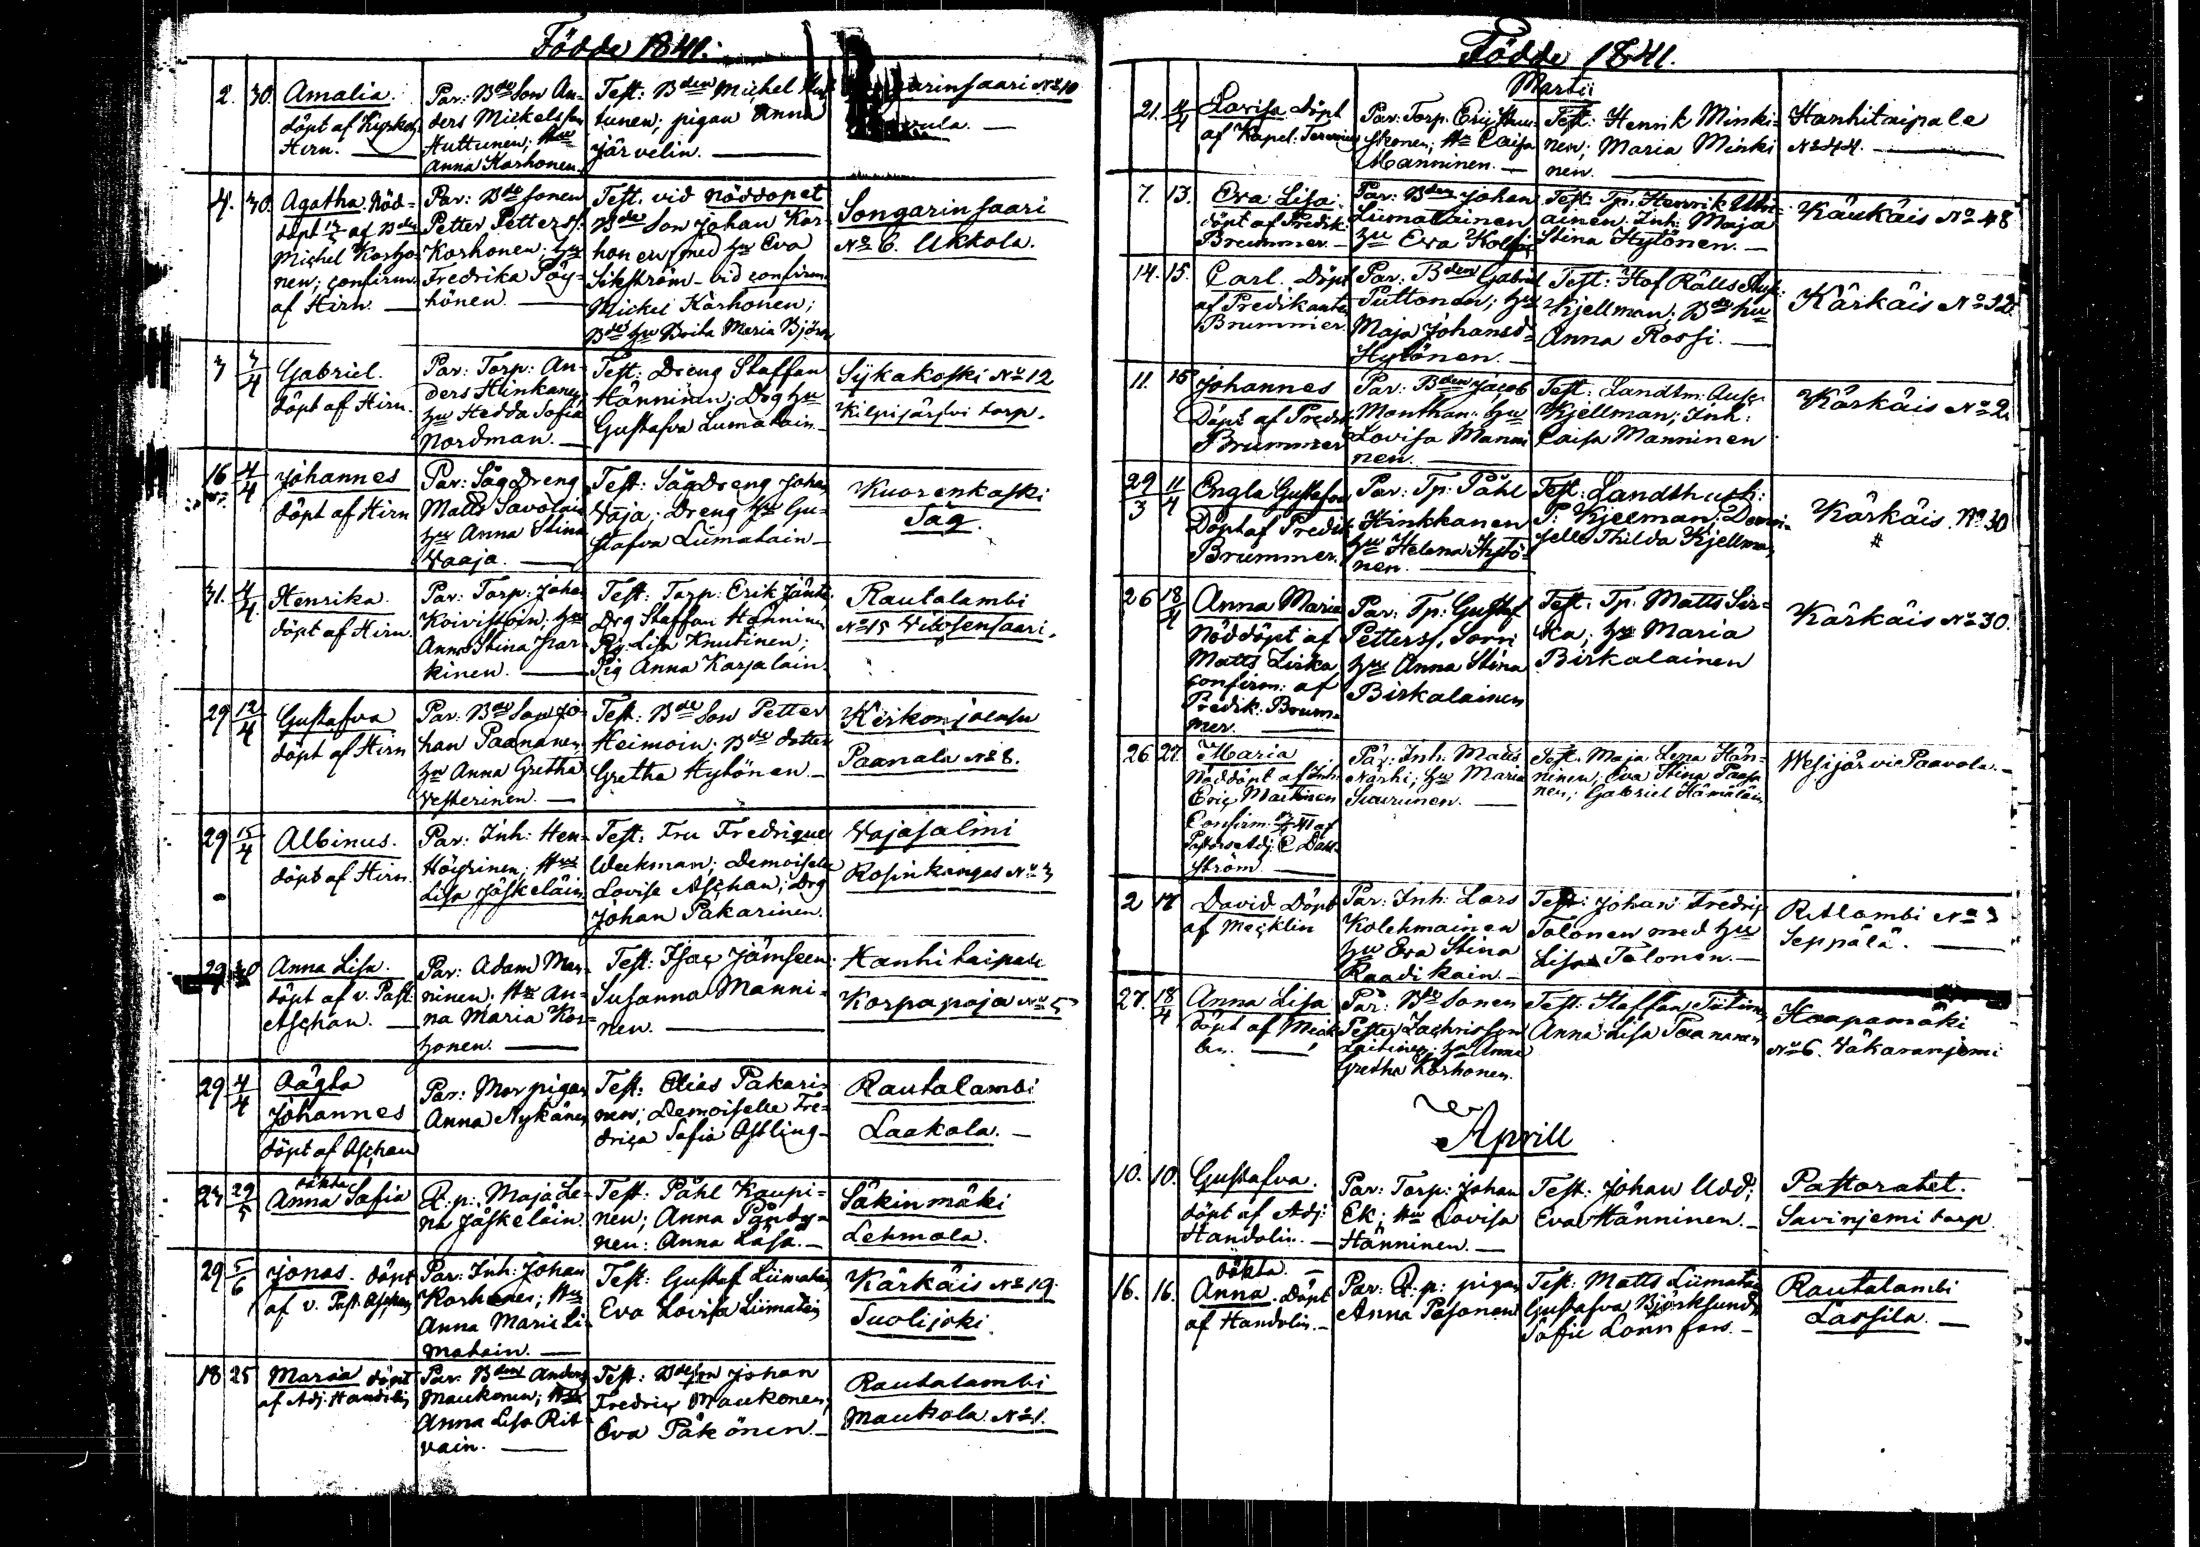 Födde 1841.
2. 30. Amalia.
döpt af
Hirn.
Par: Bde Son An-
ders Mickelsson
Huttunen; Hu
Anna Korhonen.
Test: Bden Michel Hut-
tunen; pigan Anna
Järvelin.
No 10
4. 30. Agatha. Nöd-
döpt af Bden
Michel Korho-
nen; confirm.
af Hirn.
Par: Bde Sonen
Petter Petterss.
Korhonen; hu
Fredrika Pöy-
hönen.
Test. vid nöddopet
Bde Son Johan Kor-
honen med hu Eva
vid confirm.
Mickel Korhonen;
Bdes hu Brita Maria Björn
Songarinsaari
No 6. Ukkola.
3 3/4 Gabriel.
döpt af Hirn.
Par: Torp: An-
ders Hinkanen
hu Hedda Sofia
Nordman.
Test: Dreng Staffan
Hänninen; Drg hu
Gustafva Liimatain.
Sykakoski No 12
Kilpijärvi torp.
16 4/4 Johannes
döpt af Hirn
Par: Sågdreng
Matts Savolain
hu Anna Stina
Vaaja.
Test: Sågdreng Johan
Vaja; Dreng hu Gu-
stafva Liimatain
Kuorenkoski
Såg.
31. 4/4 Henrika.
döpt af Hirn.
Par: Torp: Johan
Koivistoin; hu
Anna Stina Par-
kinen.
Test: Torp: Erik Jänt
Drg Staffan Hänninen
Pig Lisa Knutinen;
Pig Anna Karjalain.
Rautalambi
No 15
29 12/4 Gustafva
döpt af Hirn
Par: Bde Son Jo-
han Paananen
hu Anna Gretha
Vesterinen.
Test: Bde Son Petter
Heimoin; Bde dotter
Gretha Hytönen.
Kerkonjoensu
Paanala No 8.
29 15/4 Albinus.
döpt af Hirn.
Par: Inh: Hen-
Höytinen; Hu
Lisa Jäskeläin
Test: Fru Fredrique
Weckman; Demoiselle
Lovise Aschan; Drg
Johan Pakarinen.
Vajasalmi
Rosinkangas No 3
29 30 Anna Lisa.
döpt af v. Past.
Aschan.
Par: Adam Man-
ninen; Hu An-
na Maria Kor-
honen.
Test: Isac Jämseen
Susanna Manni-
nen.
Hanhitaipale
Korpapaja No 5
29 4/4 Oägta
Johannes
döpt af Aschan
Par: Mor pigan
Anna Nykänen
Test: Elias Pakari-
nen; Demoiselle Fre-
drica Sofia Östling
Rautalambi
Laakola.
23 29/5 oäkta
Anna Sofia
Q.p: Maja Le-
na Jäskeläin.
Test: Påhl Kaupi-
nen; Anna Pöndy-
nen: Anna Lasa.
Säkinmäki
Lehmola.
29 5/6 Jonas. döpt
af v. Past. Aschan
Par: Inh: Johan
Korhonen; Hu
Anna Maria Li-
matain.
Test: Gustaf Liimatain
Eva Lovisa Liimatain
Kärkäis No 19
Suolijoki.
18 25 Maria döpt
af Adj. Handolin
Par: Bden Anders
Maukonen; Hu
Anna Lisa Rit-
vain.
Test: Bde son Johan
Fredric Maukonen;
Eva Päkönen.
Rautalambi
Maukola. No 1.
Födde 1841.
Marti
21. 4/4 Lovisa döpt
af Kapel.
Par: Torp. Eric
Hu Caisa
Manninen.
Test: Henrik Minki-
nen; Maria Minki
nen.
Hanhitaipale
No 44.
7. 13. Eva Lisa
döpt af Predik:
Brummer.
Par: Bden Johan
Liimatainen
hu Eva
Test: Tp: Henrik
ainen. Inh: Maja
Stina Hytönen.
Kärkäis No 48
14. 15. Carl. Döpt
af Predikanten
Brummer.
Par: Bden Gabriel
Puttonen; hu
Maja Johansd.
Hytönen.
Test: Hof Rätts Ausk:
Kjellman; Bde hu
Anna Rossi.
Kärkäis No 32
11. 15 Johannes
Döpt af Predik
Brummer
Par: Bden Jacob
Monthan: hu
Lovisa Manni
nen.
Test: Landtm: Ausc:
Kjellman; Inh:
Caisa Manninen
Kärkäis No 2.
29/3 11/4 Engla Gustafva
Döpt af Predik
Brummer.
Par: Tp: Påhl
Hinkkanen
hu Helena Hytö-
nen.
Test: Landth
P: Kjelman; Demoi-
selle Thilda Kjellman
Kärkäis. No 30
26 18/4 Anna Maria
Nöddöpt af
Matts Lirka
confirm: af
Predik. Brum-
mer.
Par: Tp: Gustaf
Petterss. Sorri
hu Anna Stina
Birkalainen
Test: Tp: Matts Lir-
ka; hu Maria
Birkalainen
Kärkäis No 30.
26 27. Maria
Nöddöpt af Inh:
Eric Martinen
Confirm: af
Pastorsadj: C Dahl-
ström.
Par: Inh: Matts
Närhi; hu Maria
Test: Maja Lena Hän-
ninen; Eva Stina Paana-
nen; Gabriel Hämäläin
Wesijärvi Paavola.
2 17 David Döpt
af Mecklin
Par: Inh: Lars
Kolehmainen
hu Eva Stina
Raadikain.
Test: Johan Fredric
Tolonen med hu
Lisa Tolonen.
R:tlambi No 3
Seppälä.
27. 18/4 Anna Lisa
döpt af Meck-
lin.
Par: Bde Sonen
Petter Zachrisson
Laitinen; hu Anna
Gretha Korhonen.
Test: Staffan
Anna Lisa Paananen
Haapamäki
No 6. Vakaranjemi
Aprill
10. 10. Gustafva.
döpt af Adj:
Handolin.
Par: Torp: Johan
Ek; Hu Lovisa
Hänninen.
Test: Johan Udd;
Eva Hänninen.
Pastoratet.
Savinjemi torp.
16. 16. oäkta.
Anna. döpt
af Handolin.
Par: Q.p: pigan
Anna Pesonen
Test: Matts Liimatain
Gustafva Björksund
Sofie Lönnfors.
Rautalambi
Lassila.